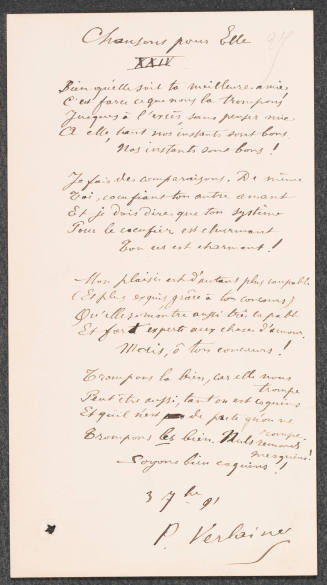 Chansons pour Elle
XXIV
Bien qu'elle soit ta meilleure amie,
C'est farce ce que nous la trompons
Jusques à l'excès sans penser mie
A elle, tant nos instants sont bons.
Nos instants sont bons !
Je fais des comparaisons. De même
Toi, cocufiant ton autre amant
Et je dois dire que ton système
Pour le cocufier est charmant
Ton cas est charmant !
Mon plaisir est d'autant plus coupable
(Et plus exquis, grâce à ton concours)
Qu'elle se montre aussi très capable
Et fort experte aux choses d'amour.
Mais, ô ton concours !
Trompons la bien, car elle nous
trompe
Peut être aussi, tant on est coquins
Et qu'il n'est de pacte qu'on ne
rompe.
Trompons les bien. Nuls remords
mesquins !
Soyons bien coquins !
3 7bre 91
P. Verlaine